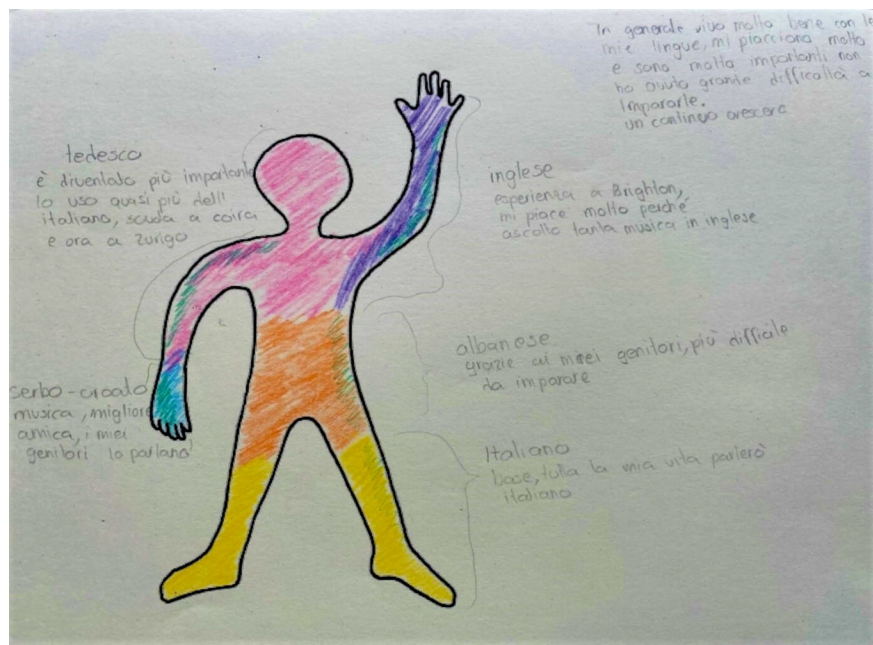 In generale vivo molto bene con le
mie lingue, mi piacciono molto
e sono molto importanti non
ho avuto grande difficoltà a
impararle.
un continuo crescere
tedesco
è diventato più importante
lo uso quasi più dell'
italiano, scuola a coira
e ora a zurigo
inglese
esperienza a Brighton,
mi piace molto perché
ascolto tanta musica in inglese
albanese
grazie ai miei genitori, più difficile
da imparare
serbo-croato
musica, migliore
amica, i miei
genitori lo parlano
Italiano
base, tutta la mia vita parlerò
italiano